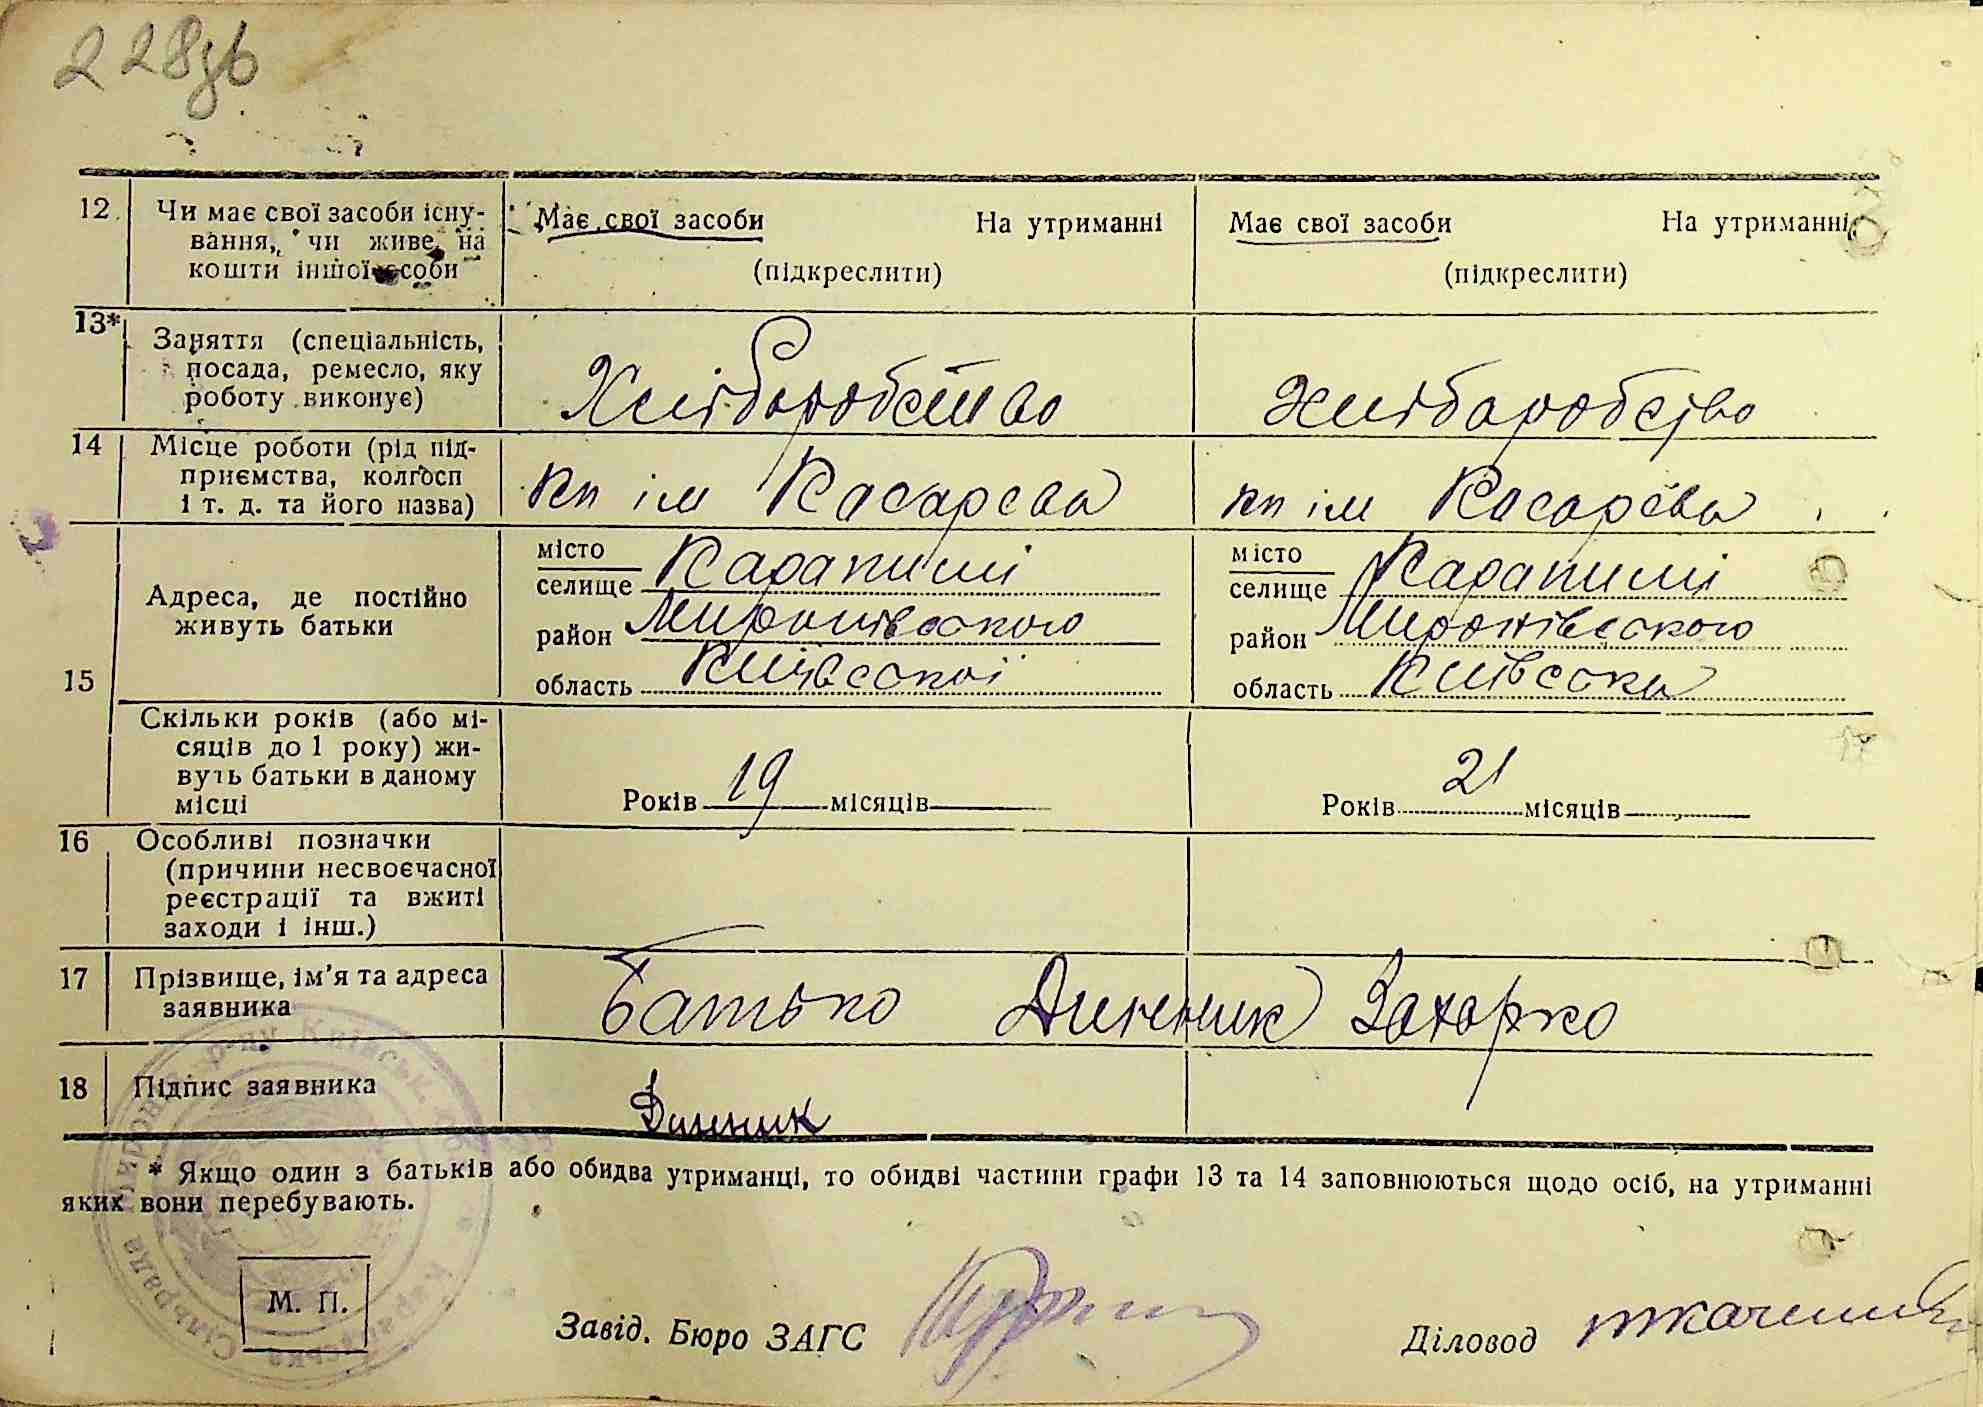 228зв
12 Чи має свої засоби існу-
вання, чи живе на
кошти іншої особи
Має свої засоби На утриманні
(підкреслити)
Має свої засоби На утриманні
(підкреслити)
13* Заняття (спеціальність,
посада, ремесло, яку
роботу виконує)
Хліборобство
Хліборобство
14 Місце роботи (рід під-
приємства, колгосп
і т. д. та його назва)
кп ім Касарева
кп ім Касарева
15 Адреса, де постійно
живуть батьки
місто
селище Карапиші
район Миронівського
область Київської
місто
селище Карапиші
район Миронівського
область Київська
Скільки років (або мі-
сяців до 1 року) жи-
вуть батьки в даному
місці
Років 19 місяців
Років 21 місяців
16 Особливі позначки
(причини несвоєчасної
реєстрації та вжиті
заходи і інш.)
17 Прізвище, ім'я та адреса
заявника
Батько Динник Захарко
18 Підпис заявника
Динник
* Якщо один з батьків або обидва утриманці, то обидві частини графи 13 та 14 заповнюються щодо осіб, на утриманні
яких вони перебувають.
М. П.
Завід. Бюро ЗАГС
Діловод